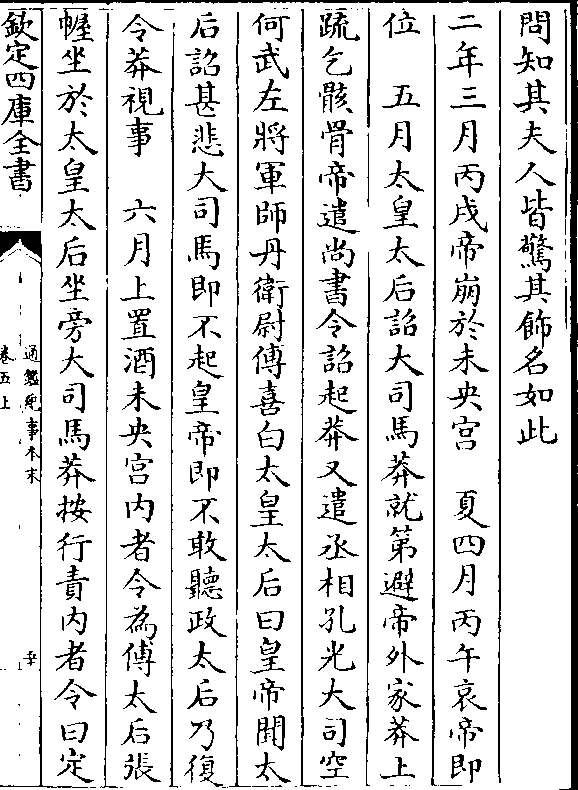 問知其夫人皆驚其飾名如此
二年三月丙戌帝崩於未央宮　夏四月丙午哀帝即
位　五月太皇太后詔大司馬莽就第避帝外家莽上
疏乞骸骨帝遣尚書令詔起莽又遣丞相孔光大司空
何武左將軍師丹衛尉傅喜白太皇太后曰皇帝聞太
后詔甚悲大司馬即不起皇帝即不敢聽政太后乃復
令莽視事　六月上置酒未央宮内者令為傅太后張
幄坐於太皇太后坐旁大司馬莽按行責内者令曰定
欽定四庫全書
通鑑紀事本末
卷五上